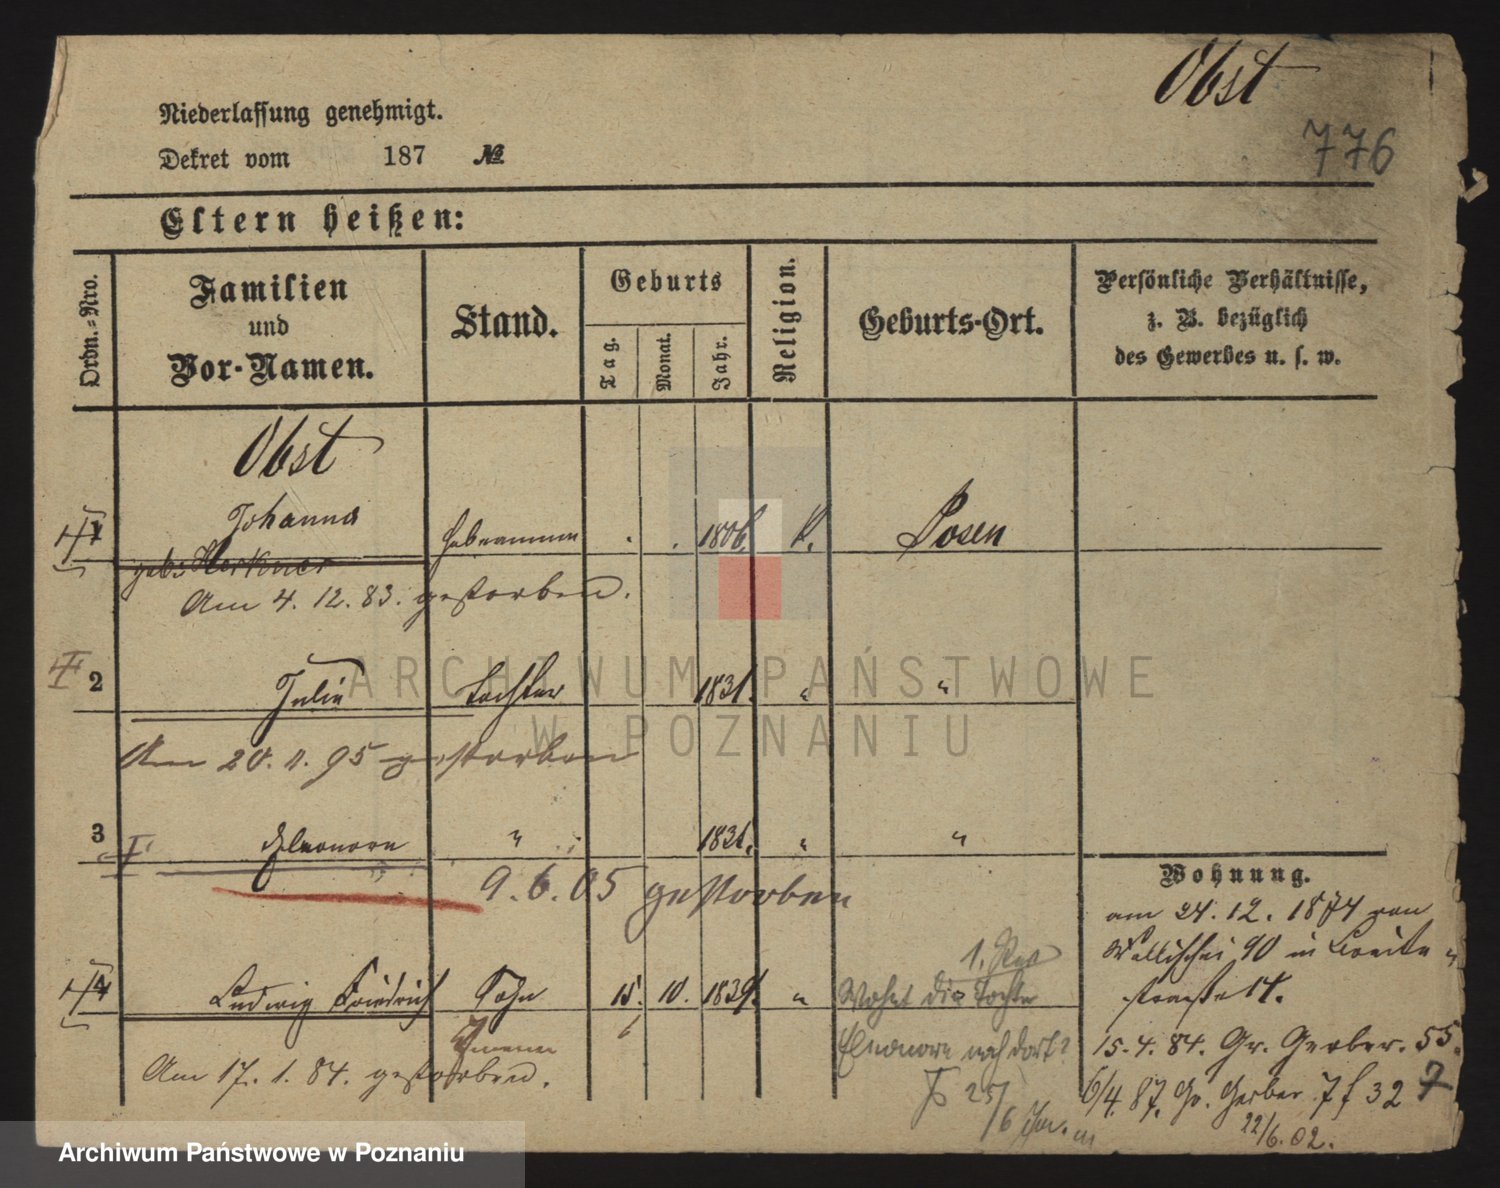 Obst
776
Niederlassung genehmigt.
Dekret vom 187 №
Eltern heißen:
Ordn.-Nro.
Familien
und
Vor-Namen.
Stand.
Geburts
Tag.
Monat.
Jahr.
Religion.
Geburts-Ort.
Persönliche Verhältnisse,
z. B. bezüglich
des Gewerbes u. s. w.
Obst
1 Johanna Hebamme 1806. K. Posen
geb: Herkner
Am 4. 12. 83. gestorben.
2 Julie Tochter 1831. " "
Am 20. 11. 95 gestorben
3 Eleonore " 1831. " "
9. 6. 05 gestorben
Wohnung.
am 24. 12. 1874 von
Wallischei 90 in Breite
straße 14.
4 Ludwig Friedrich Sohn 15. 10. 1839. "
Am 17. 1. 84. gestorben.
Wohnt die Tochter
Eleonore noch dort?
25/6
15. 4. 84. Gr. Gerber. 55.
6/4. 87. Gr. Gerber 32
22/6. 02.
ARCHIWUM PAŃSTWOWE
W POZNANIU
Archiwum Państwowe w Poznaniu